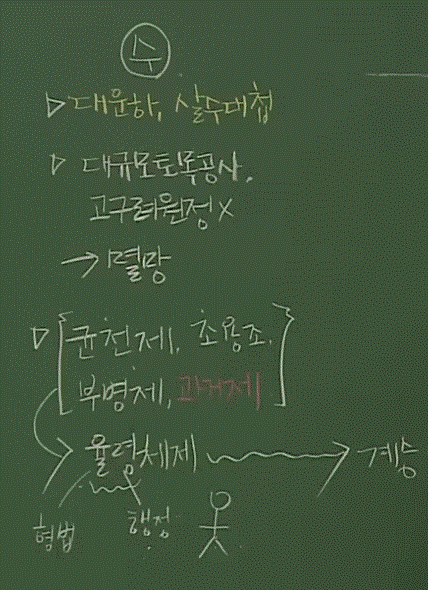 수
▷ 대운하, 살수대첩
▷ 대규모토목공사,
고구려원정 X
→ 멸망
▷ [균전제, 조용조,
부병제, 과거제]
→ 율령체제 → 계승
형법 행정